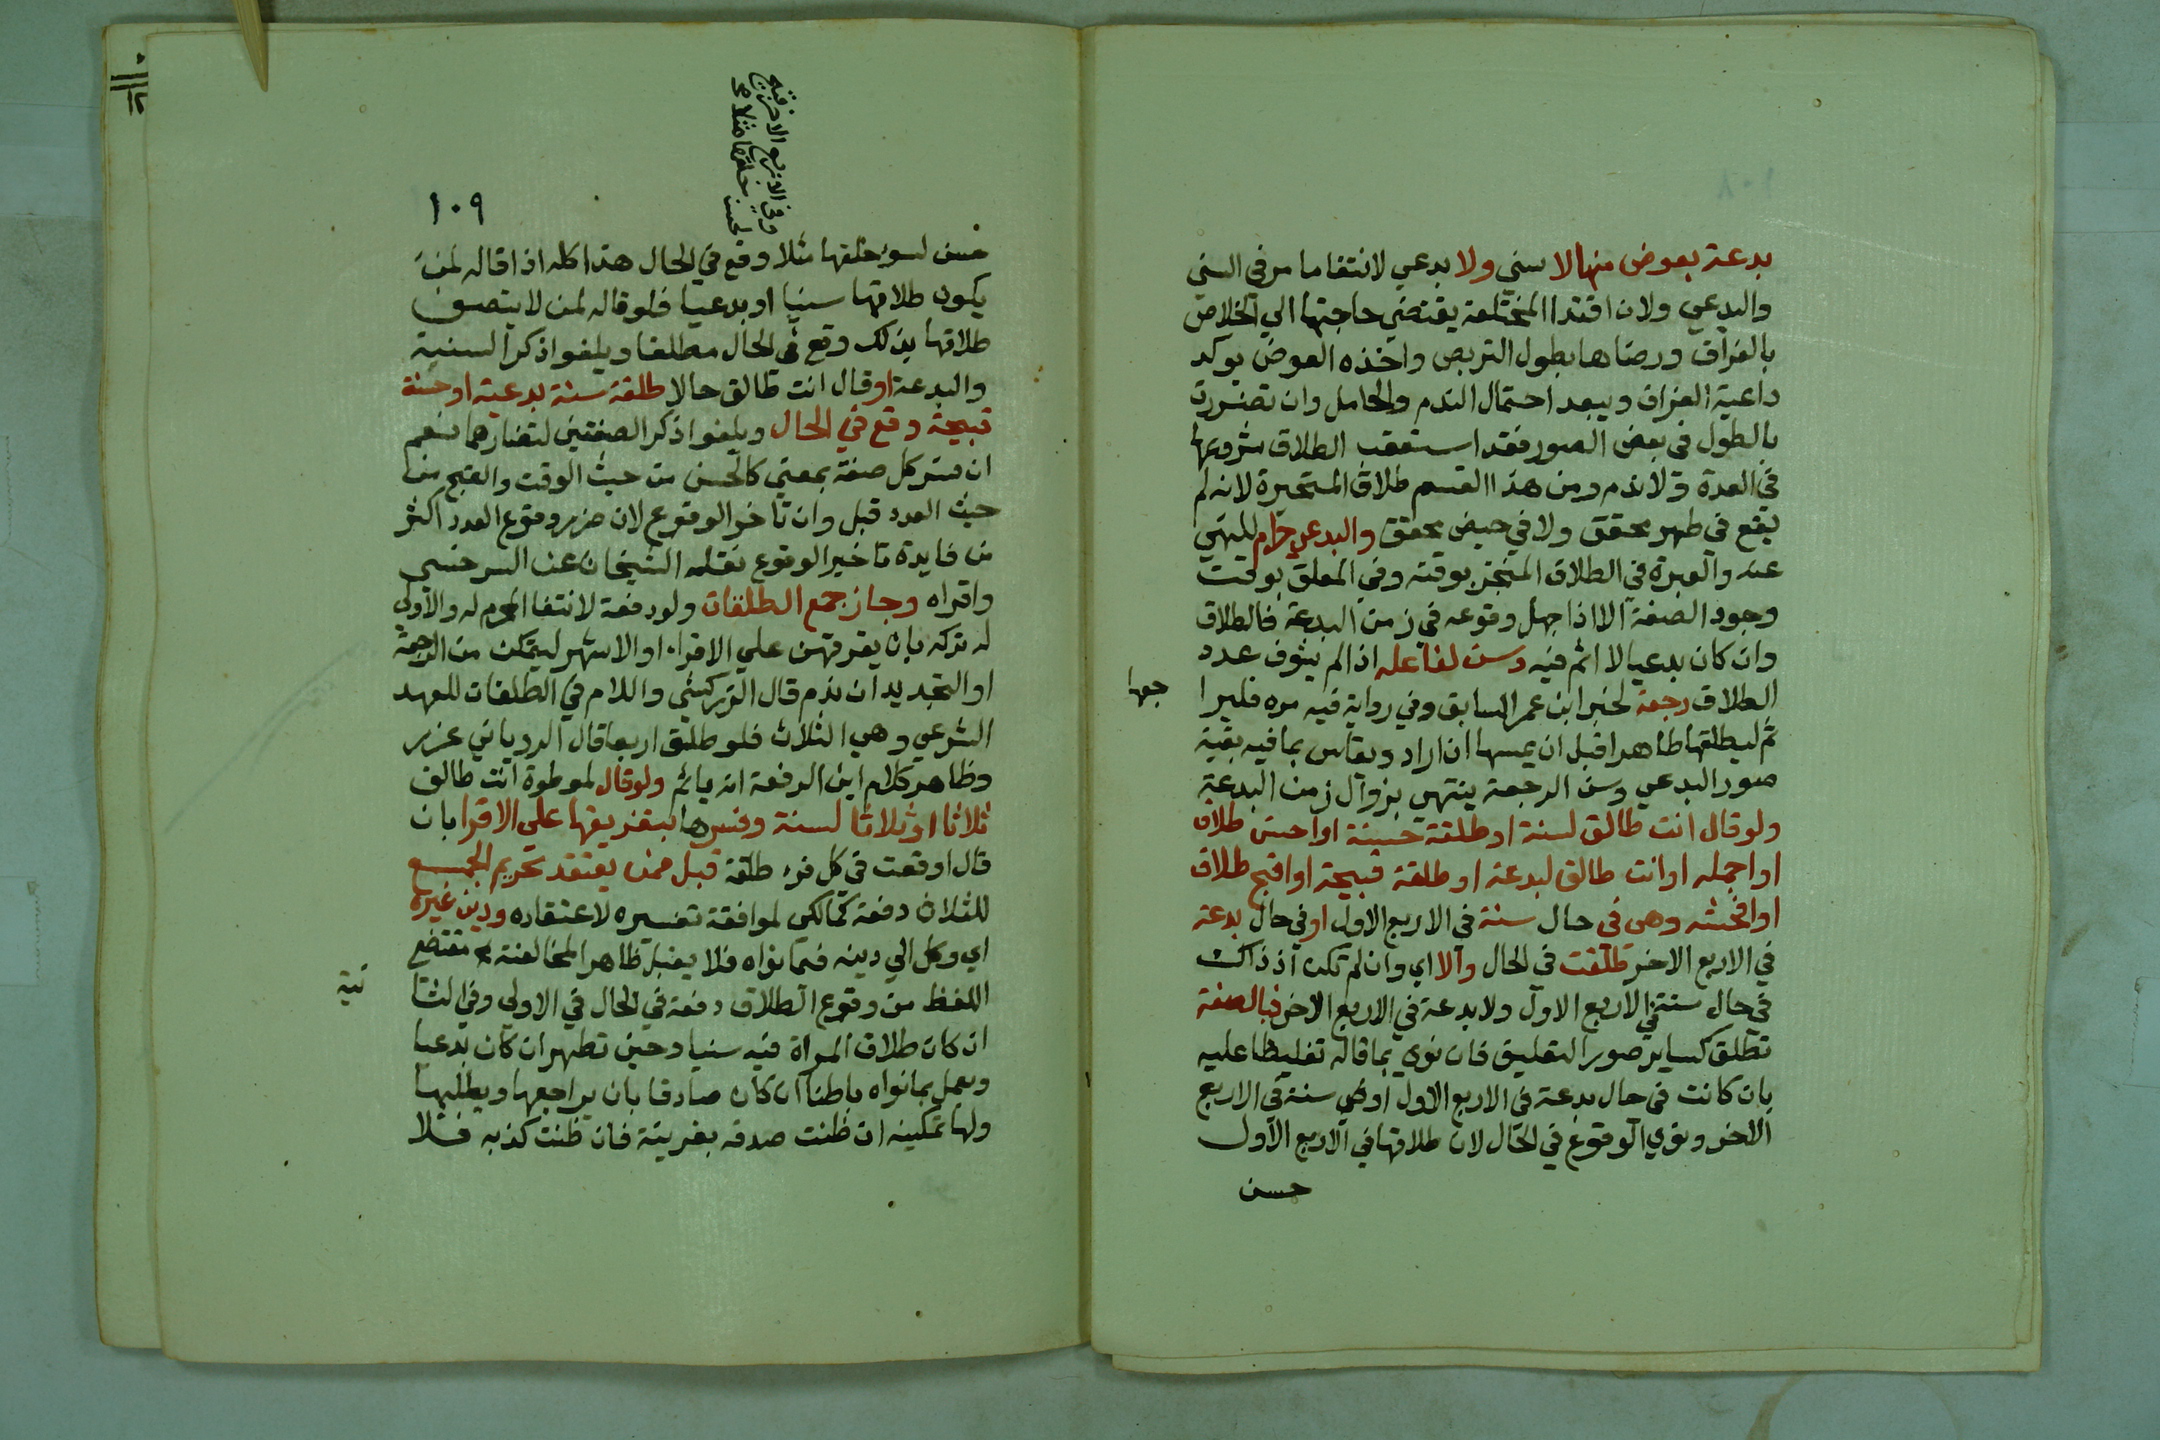 بدعة بعوض منها لا سني ولا بدعي لانتفا ما مر في السني
والبدعي ولان افتدا المختلعة يقتضي حاجتها الي الخلاص
بالفراق ورضاها بطول التربص واخذه العوض يوكد
داعية الفراق ويبعد احتمال الندم والحامل وان تضررت
بالطول في بعض الصور فقد استعقب الطلاق شروعها
في العدة ولا ندم ومن هذا القسم طلاق المتحيرة لانه لم
يقع في طهر محقق ولا في حيض محقق والبدعي حرام للنهي
عنه والعبرة في الطلاق المنجز بوقته وفي المعلق بوقت
وجود الصفة الا اذا جهل وقوعه في زمن البدعة فالطلاق
وان كان بدعيا لا اثم فيه وسن لفاعله اذا لم يستوف عدد
الطلاق رجعة لخبر ابن عمر السابق وفي رواية فيه مره فليرا
جعها
ثم ليطلقها طاهرا قبل ان يمسها ان اراد ويقاس بما فيه بقية
صور البدعي وسن الرجعة ينتهي بزوال زمن البدعة
ولو قال انت طالق لسنة او طلقة حسنة او احسن طلاق
او اجمله او انت طالق لبدعة او طلقة قبيحة او اقبح طلاق
او افحشه وهي في حال سنة في الاربع الاول او في حال بدعة
في الاربع الاخر طلقت في الحال والا اي وان لم تكن اذ ذاك
في حال سنة في الاربع الاول ولا بدعة في الاربع الاخر فبالصفة
تطلق كساير صور التعليق فان نوي بما قاله تغليظا عليه
بان كانت في حال بدعة في الاربع الاول او في سنة في الاربع
الاخر ونوي الوقوع في الحال لان طلاقها في الاربع الاول
حسن
وفي الاربع الاخر قبيح
لحسن خلقها مثلا صح
١٠٩
حسن لسو خلقها مثلا وقع في الحال هذا كله اذا قاله لمن
يكون طلاقها سنيا او بدعيا فلو قاله لمن لا يتصف
طلاقها بذلك وقع في الحال مطلقا ويلغوا ذكر السنية
والبدعة او قال انت طالق حالا طلقة سنة بدعية او حسنة
قبيحة وقع في الحال ويلغوا ذكر الصفتين لتضادهما نعم
ان فسر كل صفة بمعني كالحسن من حيث الوقت والقبح من
حيث العدد قبل وان تاخر الوقوع لان ضرر وقوع العدد اكثر
من فايدة تاخير الوقوع نقله الشيخان عن السرخسي
واقراه وجاز جمع الطلقات ولو دفعة لانتفا المحرم له والاولي
له تركه بان يفرقهن علي الاقراء او الاشهر ليتمكن من الرجعة
او التجديد ان ندم قال الزركشي واللام في الطلقات للعهد
الشرعي وهي الثلاث فلو طلق اربعا قال الروياني عزر
وظاهر كلام ابن الرفعة انه ياثم ولو قال لموطوة انت طالق
ثلاثا او ثلاثا لسنة وفسرها بتفريقها علي الاقرا بان
قال اوقعت في كل قرء طلقة قبل ممن يعتقد تحريم الجمع
للثلاث دفعة كمالكي لموافقة تفسيره لاعتقاده ودين غيره
اي وكل الي دينه فيما نواه فلا يقبل ظاهرا لمخالفته مقتضي
اللفظ من وقوع الطلاق دفعة في الحال في الاولي وفي الثا
نية
ان كان طلاق المراة فيه سنيا وحين تطهر ان كان بدعيا
ويعمل بما نواه باطنا ان كان صادقا بان يراجعها ويطلبها
ولها تمكينه ان ظنت صدقه بقرينة فان ظنت كذبه فلا